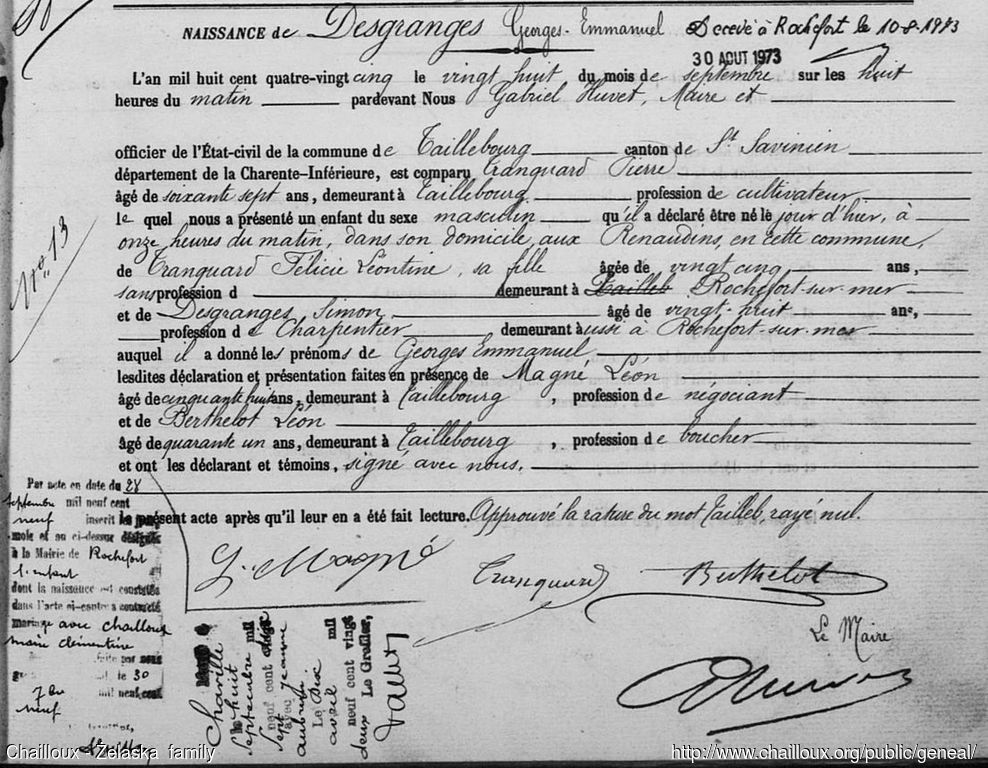 NAISSANCE de Desgranges Georges-Emmanuel Decedé à Rochefort le 10-8-1973
30 AOUT 1973
L'an mil huit cent quatre-vingt cinq le vingt huit du mois de septembre sur les huit
heures du matin pardevant Nous Gabriel Huvet, Maire et
officier de l'État-civil de la commune de Taillebourg canton de St Savinien
département de la Charente-Inférieure, est comparu Tranquard Pierre
âgé de soixante sept ans, demeurant à Taillebourg profession de cultivateur
le quel nous a présenté un enfant du sexe masculin qu'il a déclaré être né le jour d'hier, à
onze heures du matin, dans son domicile, aux Renaudins, en cette commune,
de Tranquard Félicie Léontine, sa fille âgée de vingt cinq ans,
sans profession d demeurant à Tailleb Rochefort-sur-mer
et de Desgranges, Simon âgé de vingt-huit ans,
profession de Charpentier demeurant aussi à Rochefort-sur-mer
auquel il a donné les prénoms de Georges Emmanuel
lesdites déclaration et présentation faites en présence de Magné Léon
âgé de cinquante huit ans, demeurant à Taillebourg, profession de négociant
et de Berthelot Léon
âgé de quarante un ans, demeurant à Taillebourg, profession de boucher
et ont les déclarant et témoins, signé avec nous,
le présent acte après qu'il leur en a été fait lecture. Approuvé la rature du mot Tailleb, rayé nul
L. Magné Tranquard Berthelot
Le Maire
GHuvet
No. 13
Par acte en date du 28
septembre mil neuf cent
neuf inscrit
et au ci-dessus désignés
à la Mairie de Rochefort
l'enfant
dont la naissance est constatée
dans l'acte ci-contre a contracté
mariage avec chailloux
marie clémentine
le 30
7bre mil neuf cent
neuf
Charville
le huit
septembre mil
neuf cent
sept avec jeanne
aubusin
Le Dix
avril mil
neuf cent vingt
deux Le Greffier,
Chailloux - Zelaska family
http://www.chailloux.org/public/geneal/